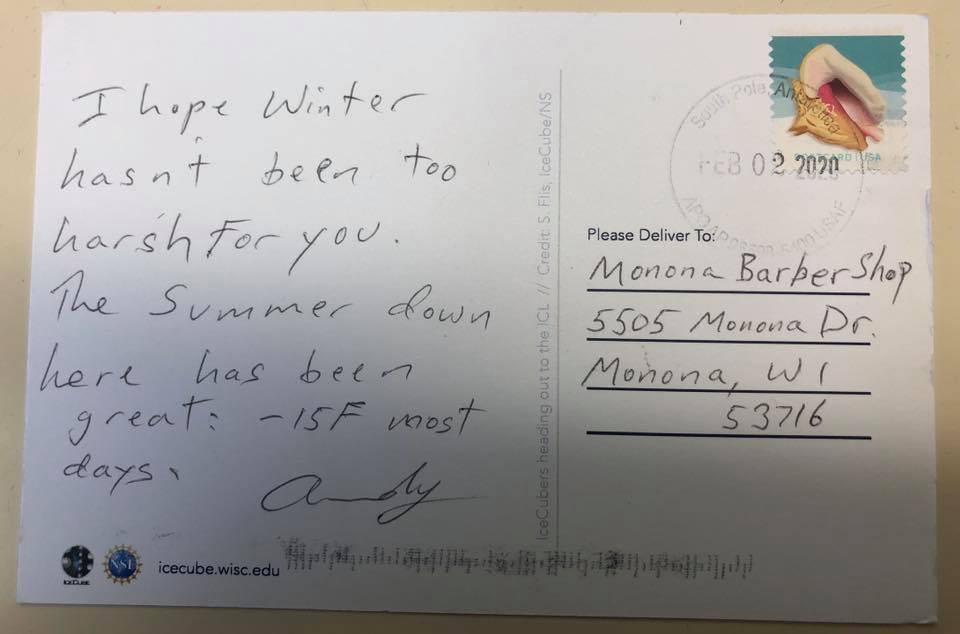 I hope Winter
hasn't been too
harsh for you.
The Summer down
here has been
great: -15F most
days.
Andy
ICECUBE
NSF
icecube.wisc.edu
IceCubers heading out to the ICL // Credit: S. Flis, IceCube/NS
POSTCARD | USA
South Pole, Antarctica
FEB 02 2020
USAF
Please Deliver To:
Monona Barber Shop
5505 Monona Dr.
Monona, WI
53716